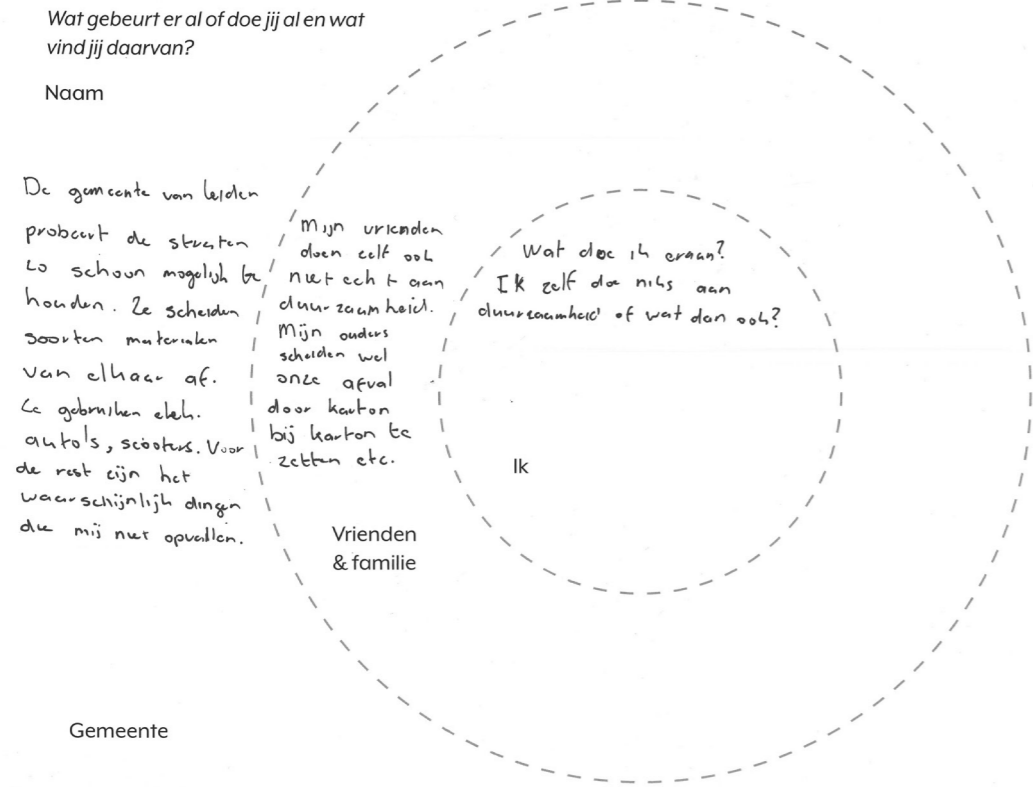 Wat gebeurt er al of doe jij al en wat
vind jij daarvan?
Naam
De gemeente van leiden
probeert de straten
zo schoon mogelijk te
houden. Ze scheiden
soorten materialen
van elkaar af.
Ze gebruiken elek.
auto's, scooters. Voor
de rest zijn het
waarschijnlijk dingen
die mij niet opvallen.
Mijn vrienden
doen zelf ook
niet echt aan
duurzaamheid.
Mijn ouders
scheiden wel
onze afval
door karton
bij karton te
zetten etc.
Wat doe ik eraan?
Ik zelf doe niks aan
duurzaamheid of wat dan ook?
Ik
Vrienden
& familie
Gemeente